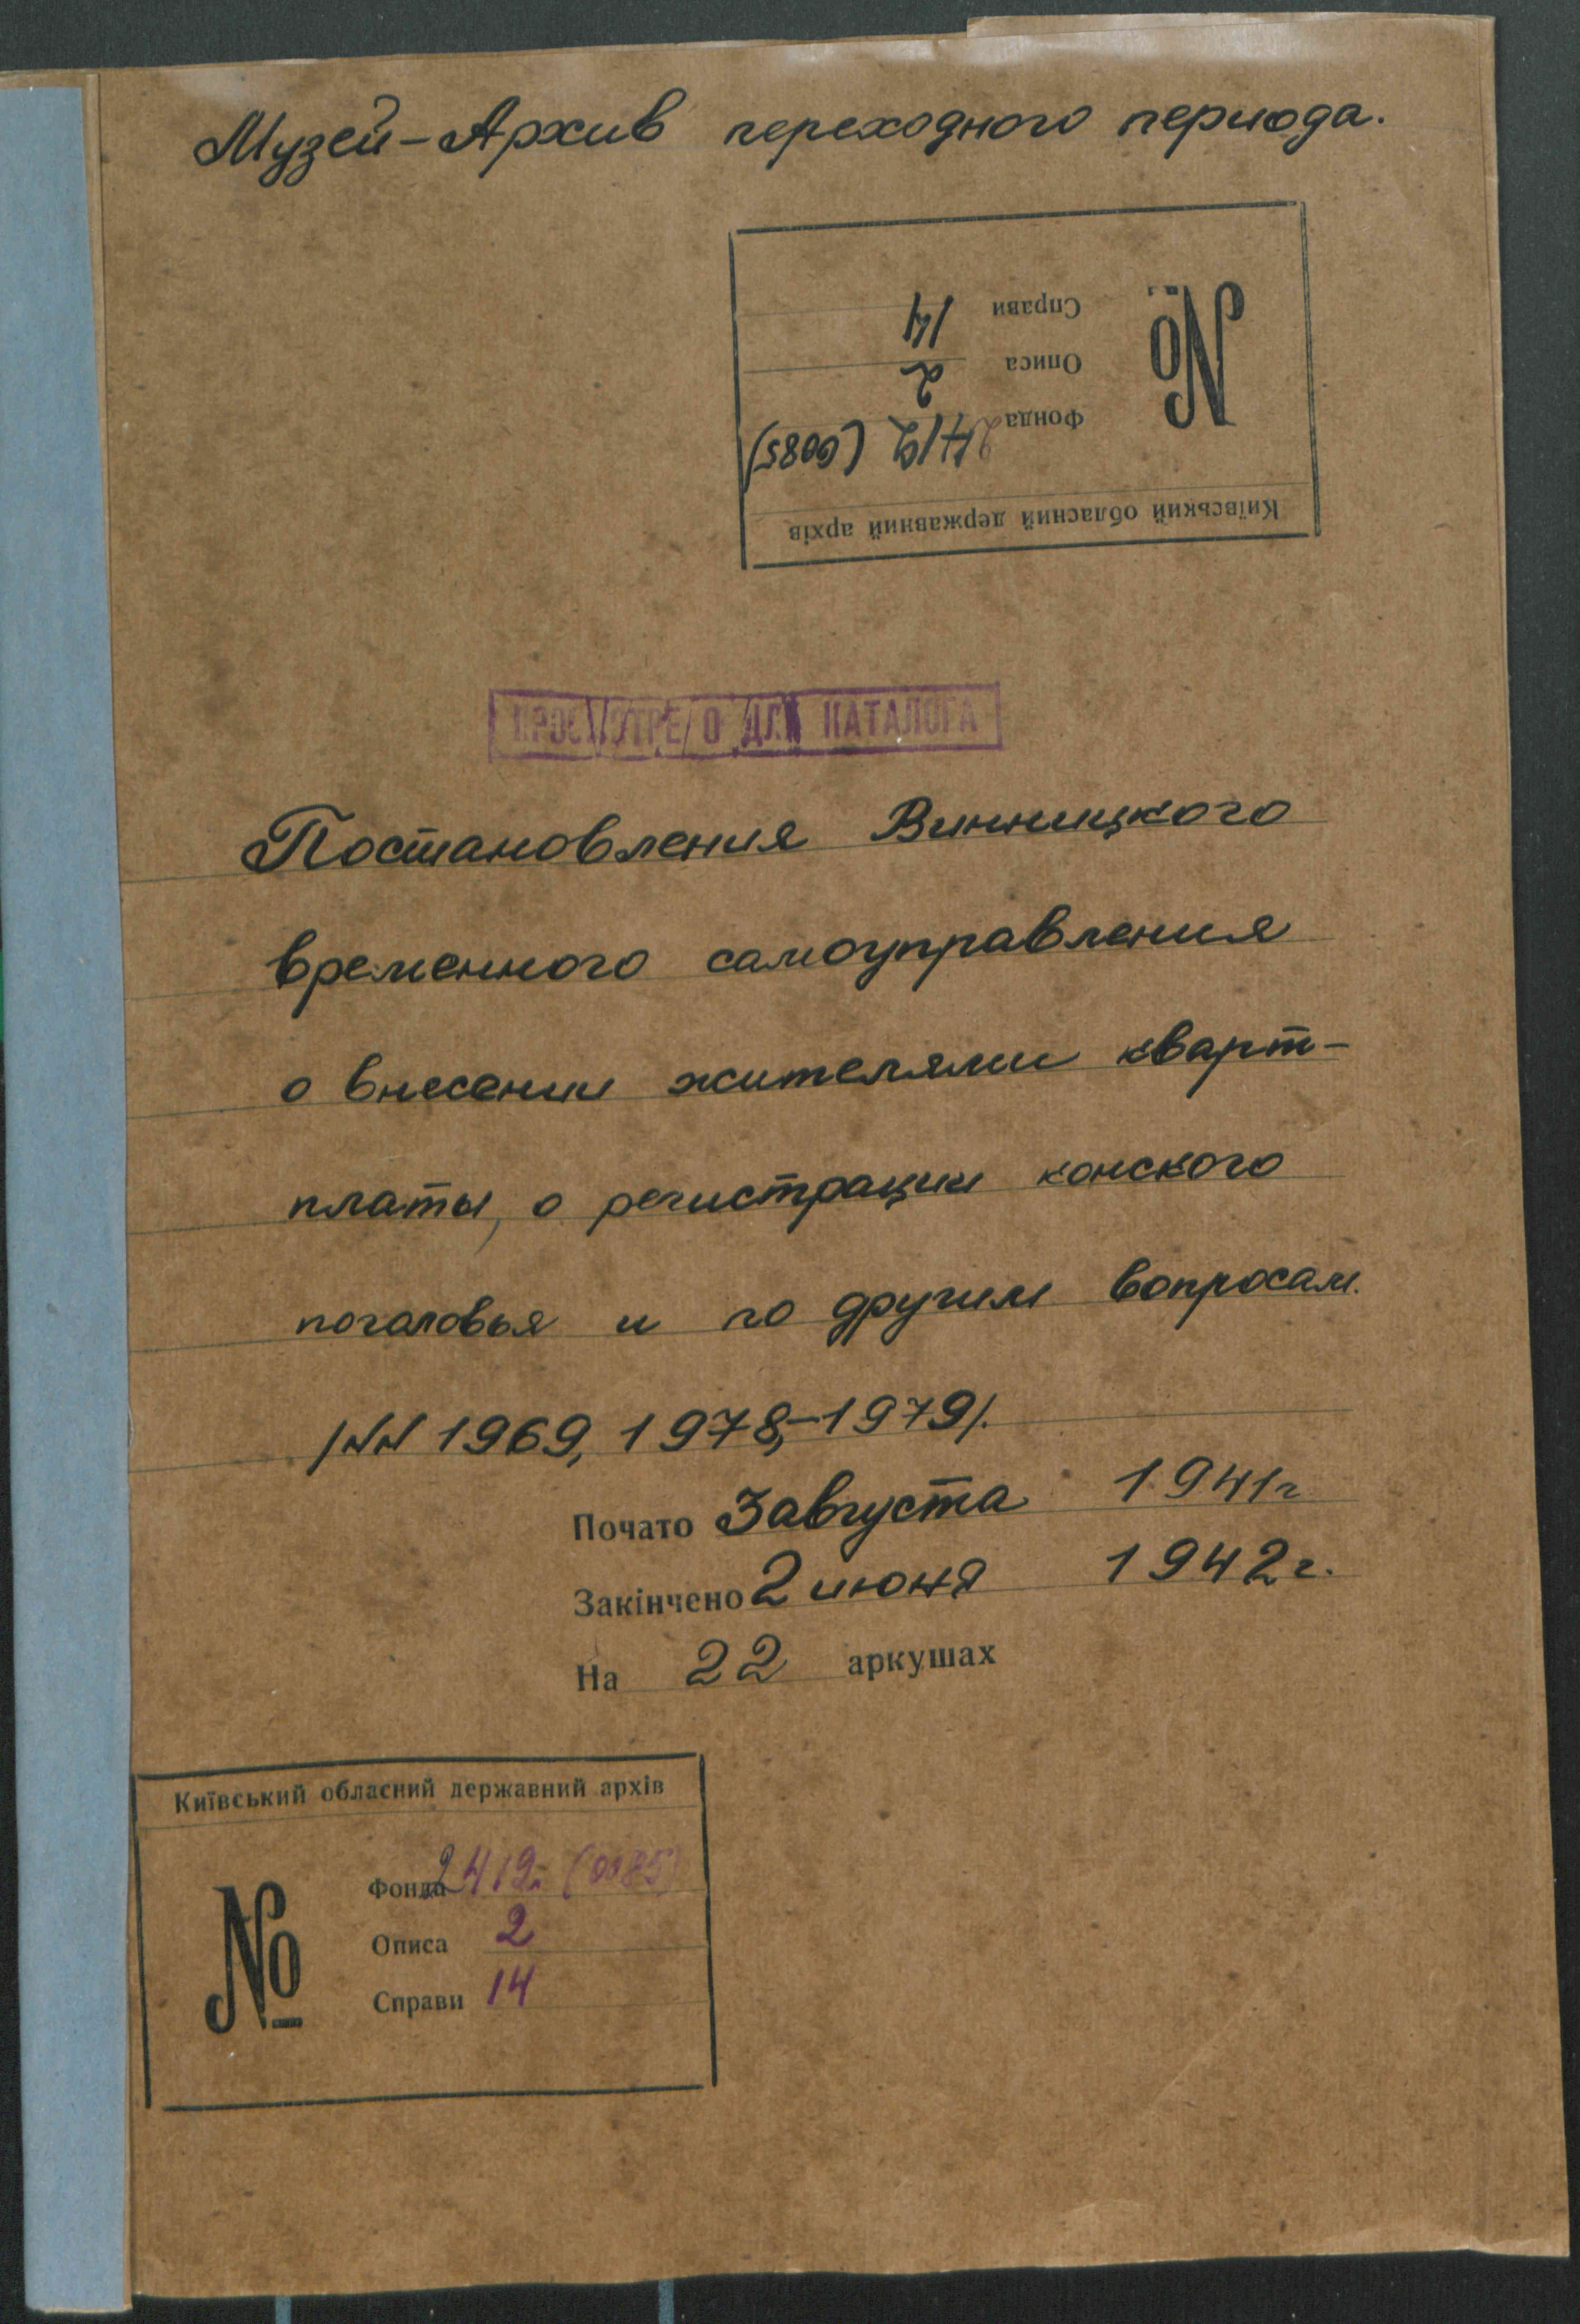 Музей-Архив переходного периода.
Київський обласний державний архів
№
Фонда 2412 (0085)
Описа 2
Справи 14
ПРОСМОТРЕНО ДЛЯ КАТАЛОГА
Постановления Винницкого
временного самоуправления
о внесении жителями кварт-
платы, о регистрации конского
поголовья и по другим вопросам.
/NN 1969, 1978,-1979/.
Почато 3 августа 1941г
Закінчено 2 июня 1942г.
На 22 аркушах
Київський обласний державний архів
№
Фонда 2412 (0085)
Описа 2
Справи 14